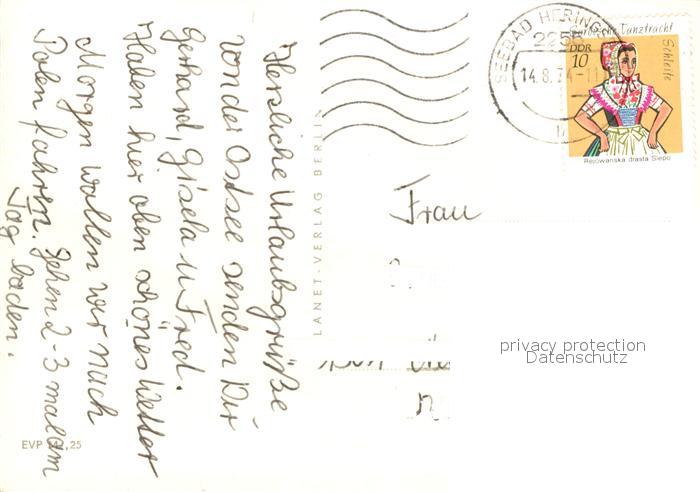 Herzliche Urlaubsgrüße
von der Ostsee senden Dir
Gerhard, Gisela u. Fred.
Haben hier oben schönes Wetter
Morgen wollen wir nach
Polen fahren. Gehen 2-3 mal am
Tag baden.
EVP
,25
PLANET-VERLAG BERLIN
SEEBAD HERING
2255
14.8.74-11
Sorbische Tanztracht
Schleife
DDR
10
Rejowanska drasta Slepo
Frau
privacy protection
Datenschutz